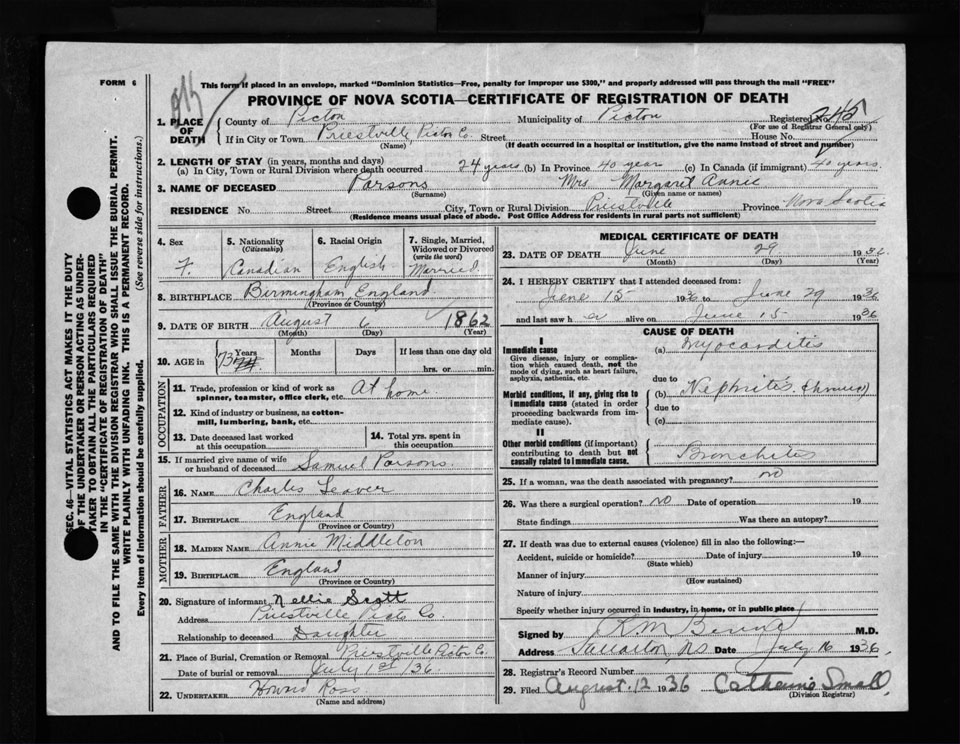 FORM 6
This form if placed in an envelope, marked "Dominion Statistics—Free, penalty for improper use $300," and properly addressed will pass through the mail "FREE"
PROVINCE OF NOVA SCOTIA—CERTIFICATE OF REGISTRATION OF DEATH
1. PLACE OF DEATH
County of Picton Municipality of Picton Registered No.
(For use of Registrar General only)
If in City or Town Priestville Picton Co. Street House No.
(Name) (If death occurred in a hospital or institution, give the name instead of street and number)
2. LENGTH OF STAY (in years, months and days)
(a) In City, Town or Rural Division where death occurred 24 years (b) In Province 40 year (c) In Canada (if immigrant) 40 years.
3. NAME OF DECEASED Parsons Mrs. Margaret Annie
(Surname) (Given name or names)
RESIDENCE No. Street City, Town or Rural Division Priestville Province Nova Scotia
(Residence means usual place of abode. Post Office Address for residents in rural parts not sufficient)
4. Sex F.
5. Nationality (Citizenship) Canadian
6. Racial Origin English
7. Single, Married, Widowed or Divorced (write the word) Married
8. BIRTHPLACE Birmingham, England
(Province or Country)
9. DATE OF BIRTH August 6 1862
(Month) (Day) (Year)
10. AGE in 73 Years Months Days If less than one day old
hrs. or min.
OCCUPATION
11. Trade, profession or kind of work as spinner, teamster, office clerk, etc. At home
12. Kind of industry or business, as cotton-mill, lumbering, bank, etc.
13. Date deceased last worked at this occupation
14. Total yrs. spent in this occupation
15. If married give name of wife or husband of deceased Samuel Parsons.
FATHER
16. NAME Charles Seaver
17. BIRTHPLACE England
(Province or Country)
MOTHER
18. MAIDEN NAME Annie Middleton
19. BIRTHPLACE England
(Province or Country)
20. Signature of informant Nellie Scott
Address Priestville Picto Co.
Relationship to deceased Daughter
21. Place of Burial, Cremation or Removal Priestville Picton Co
Date of burial or removal July 1st /36.
22. UNDERTAKER Howard Ross
(Name and address)
MEDICAL CERTIFICATE OF DEATH
23. DATE OF DEATH June 29 1936
(Month) (Day) (Year)
24. I HEREBY CERTIFY that I attended deceased from:
June 15 1936 to June 29 1936
and last saw her alive on June 15 1936
CAUSE OF DEATH
I
Immediate cause
Give disease, injury or complication which caused death, not the mode of dying, such as heart failure, asphyxia, asthenia, etc.
(a) Myocarditis
due to
Morbid conditions, if any, giving rise to immediate cause (stated in order proceeding backwards from immediate cause.
(b) Nephritis (chronic)
due to
(c)
II
Other morbid conditions (if important) contributing to death but not causally related to immediate cause.
Bronchitis
25. If a woman, was the death associated with pregnancy? no
26. Was there a surgical operation? no Date of operation 19
State findings Was there an autopsy?
27. If death was due to external causes (violence) fill in also the following:—
Accident, suicide or homicide? Date of injury 19
(State which)
Manner of injury
(How sustained)
Nature of injury
Specify whether injury occurred in industry, in home, or in public place
Signed by M.D.
Address Date July 16 1936.
28. Registrar's Record Number
29. Filed August. 12 1936 Catherine Small,
(Division Registrar)
SEC. 46—VITAL STATISTICS ACT MAKES IT THE DUTY
OF THE UNDERTAKER OR PERSON ACTING AS UNDER-
TAKER TO OBTAIN ALL THE PARTICULARS REQUIRED
IN THE "CERTIFICATE OF REGISTRATION OF DEATH"
AND TO FILE THE SAME WITH THE DIVISION REGISTRAR WHO SHALL ISSUE THE BURIAL PERMIT.
WRITE PLAINLY WITH UNFADING INK. THIS IS A PERMANENT RECORD.
Every item of information should be carefully supplied. (See reverse side for instructions.)